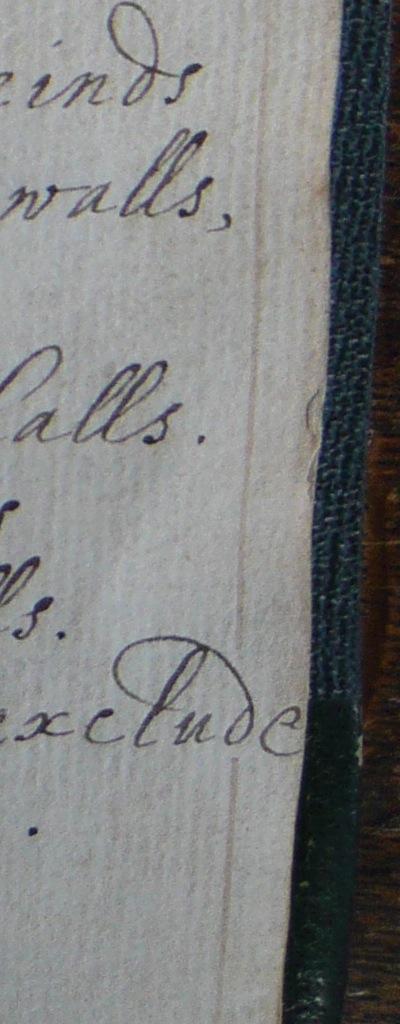 einds
walls,
Calls.
s
lls.
exclude
.